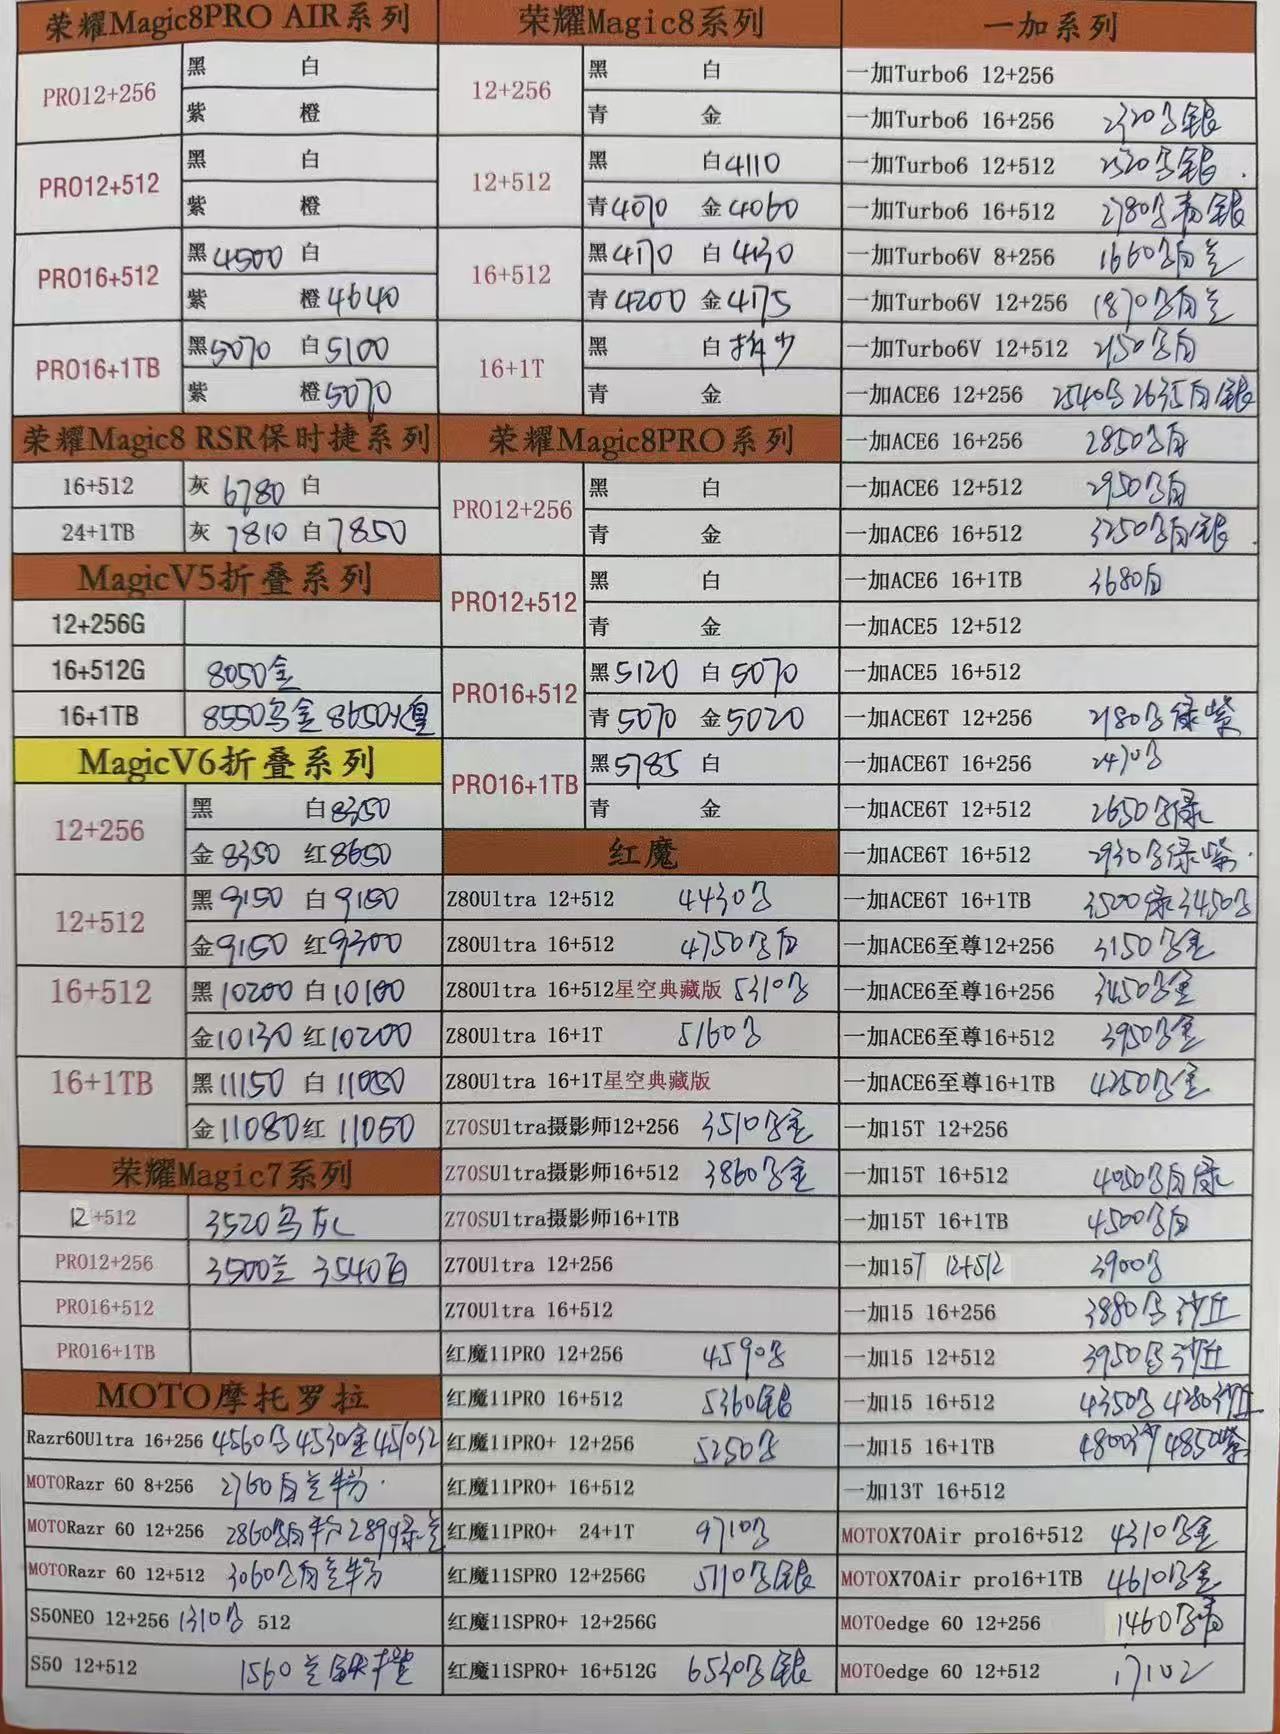 荣耀Magic8PRO AIR系列
PRO12+256
黑 白
紫 橙
PRO12+512
黑 白
紫 橙
PRO16+512
黑4500 白
紫 橙4640
PRO16+1TB
黑5070 白5100
紫 橙5070
荣耀Magic8 RSR保时捷系列
16+512 灰 6780 白
24+1TB 灰 7810 白 7850
MagicV5折叠系列
12+256G
16+512G 8050金
16+1TB 8550乌金 8650
MagicV6折叠系列
12+256
黑 白8350
金8350 红8650
12+512
黑9150 白9150
金9150 红9300
16+512
黑10200 白10100
金10130 红10200
16+1TB
黑11150 白11050
金11080 红11050
荣耀Magic7系列
12+512 3520 灰
PRO12+256 3500兰 3540白
PRO16+512
PRO16+1TB
MOTO摩托罗拉
Razr60Ultra 16+256 4560 4530金 4510红
MOTORazr 60 8+256 2760白兰粉
MOTORazr 60 12+256 2860 白粉 289 绿兰
MOTORazr 60 12+512 3060 白兰粉
S50NEO 12+256 1310 512
S50 12+512 1560兰
荣耀Magic8系列
12+256
黑 白
青 金
12+512
黑 白4110
青4070 金4060
16+512
黑4170 白4130
青4200 金4175
16+1T
黑 白
青 金
荣耀Magic8PRO系列
PRO12+256
黑 白
青 金
PRO12+512
黑 白
青 金
PRO16+512
黑5120 白5070
青5070 金5020
PRO16+1TB
黑5785 白
青 金
红魔
Z80Ultra 12+512 4430
Z80Ultra 16+512 4750 白
Z80Ultra 16+512星空典藏版 5310
Z80Ultra 16+1T 5160
Z80Ultra 16+1T星空典藏版
Z70SUltra摄影师12+256 3510 金
Z70SUltra摄影师16+512 3860 金
Z70SUltra摄影师16+1TB
Z70Ultra 12+256
Z70Ultra 16+512
红魔11PRO 12+256 4590
红魔11PRO 16+512 5360银
红魔11PRO+ 12+256 5250
红魔11PRO+ 16+512
红魔11PRO+ 24+1T 9710
红魔11SPRO 12+256G 5110 银
红魔11SPRO+ 12+256G
红魔11SPRO+ 16+512G 6530 银
一加系列
一加Turbo6 12+256
一加Turbo6 16+256 2320 银
一加Turbo6 12+512 银
一加Turbo6 16+512 2780 银
一加Turbo6V 8+256 1660 白兰
一加Turbo6V 12+256 1870 白兰
一加Turbo6V 12+512 2150 白
一加ACE6 12+256 2540 2635白银
一加ACE6 16+256 2850 白
一加ACE6 12+512 2950 白
一加ACE6 16+512 3250 白银
一加ACE6 16+1TB 3680白
一加ACE5 12+512
一加ACE5 16+512
一加ACE6T 12+256 2180 绿紫
一加ACE6T 16+256 2470
一加ACE6T 12+512 2650 绿
一加ACE6T 16+512 2930 绿紫
一加ACE6T 16+1TB 3500绿3450
一加ACE6至尊12+256 3150 金
一加ACE6至尊16+256 3450 金
一加ACE6至尊16+512 3950 金
一加ACE6至尊16+1TB 4250 金
一加15T 12+256
一加15T 16+512 4050 白绿
一加15T 16+1TB 4500 白
一加15T 12+512 3900
一加15 16+256 3880 沙丘
一加15 12+512 3950 沙丘
一加15 16+512 4350 4280沙丘
一加15 16+1TB 4800沙 4850紫
一加13T 16+512
MOTOX70Air pro16+512 4310 金
MOTOX70Air pro16+1TB 4610 金
MOTOedge 60 12+256 1460 青
MOTOedge 60 12+512 1710